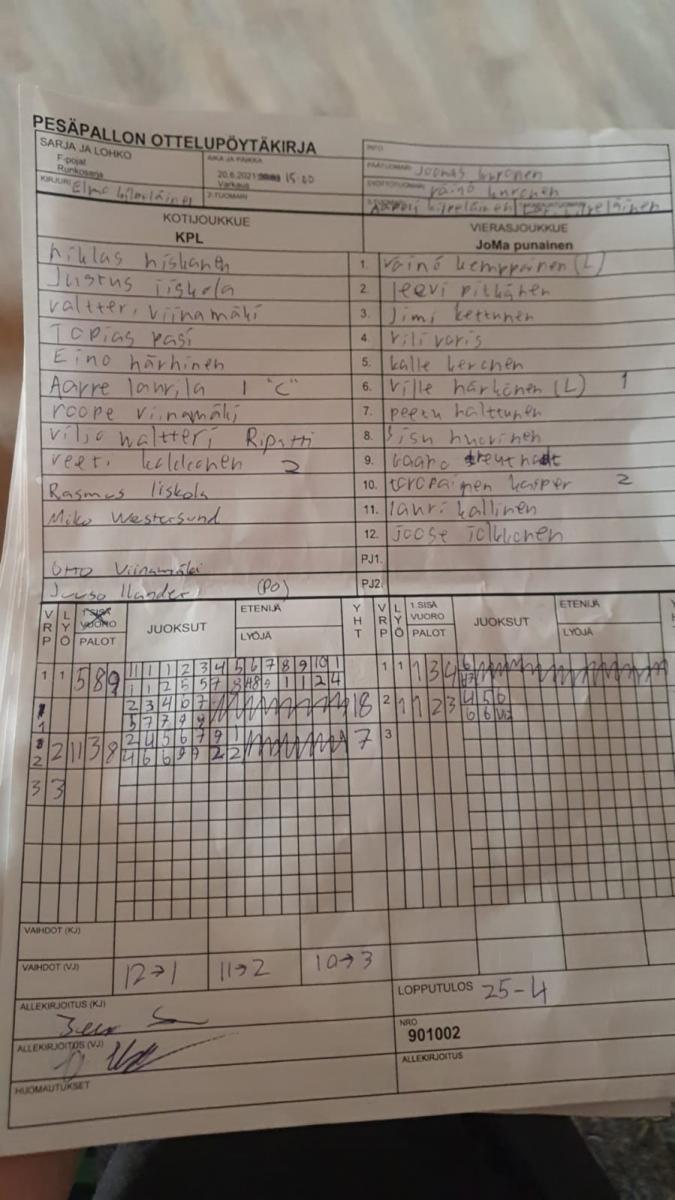 PESÄPALLON OTTELUPÖYTÄKIRJA
SARJA JA LOHKO
F-pojat
Runkosarja
AIKA JA PAIKKA
20.6.2021 15.00
Varkaus
INFO
PÄÄTUOMARI Joonas
SYÖTTÖTUOMARI väinö
KIRJURI Elmo
2-TUOMARI
KOTIJOUKKUE
KPL
VIERASJOUKKUE
JoMa punainen
niklas hiskanen
1. väinö kemppainen (L)
Justus iiskola
2. leevi pitkänen
valtteri viinamäki
3. Jimi kettunen
Topias pasi
4. vili varis
Eino härhinen
5. kalle kerchen
Aarre laurila 1 "C"
6. ville härkönen (L) 1
roope viinamäki
7. peetu halttunen
viljo waltteri Ripatti
8. Sisu huovinen
veeti kekkonen 2
9.
Rasmus Iiskola
10. toropainen kasper 2
Miko Westersund
11. lauri kallinen
12. joose jolkkonen
Otto Viinamäki
PJ1.
Juuso Ilander (PO)
PJ2.
VRP LYÖ 1.SISÄ VUORO PALOT JUOKSUT ETENIJÄ LYÖJÄ YHT VRP LYÖ 1.SISÄ VUORO PALOT JUOKSUT ETENIJÄ LYÖJÄ
1 1 5 8 9
11 1 1 2 3 4 5 6 7 8 9 10 1
1 1 1 3 4
2 3 4 6 7
18
2 1 1 2 3
4 5 6
5 7 7 9 9
2 2 11 3 8
2 4 5 6 7 9 1
7
3
4 6 6 9 9 2 2
3 3
VAIHDOT (KJ)
VAIHDOT (VJ) 12→1 11→2 10→3
ALLEKIRJOITUS (KJ)
LOPPUTULOS 25-4
ALLEKIRJOITUS (VJ)
NRO
901002
ALLEKIRJOITUS
HUOMAUTUKSET